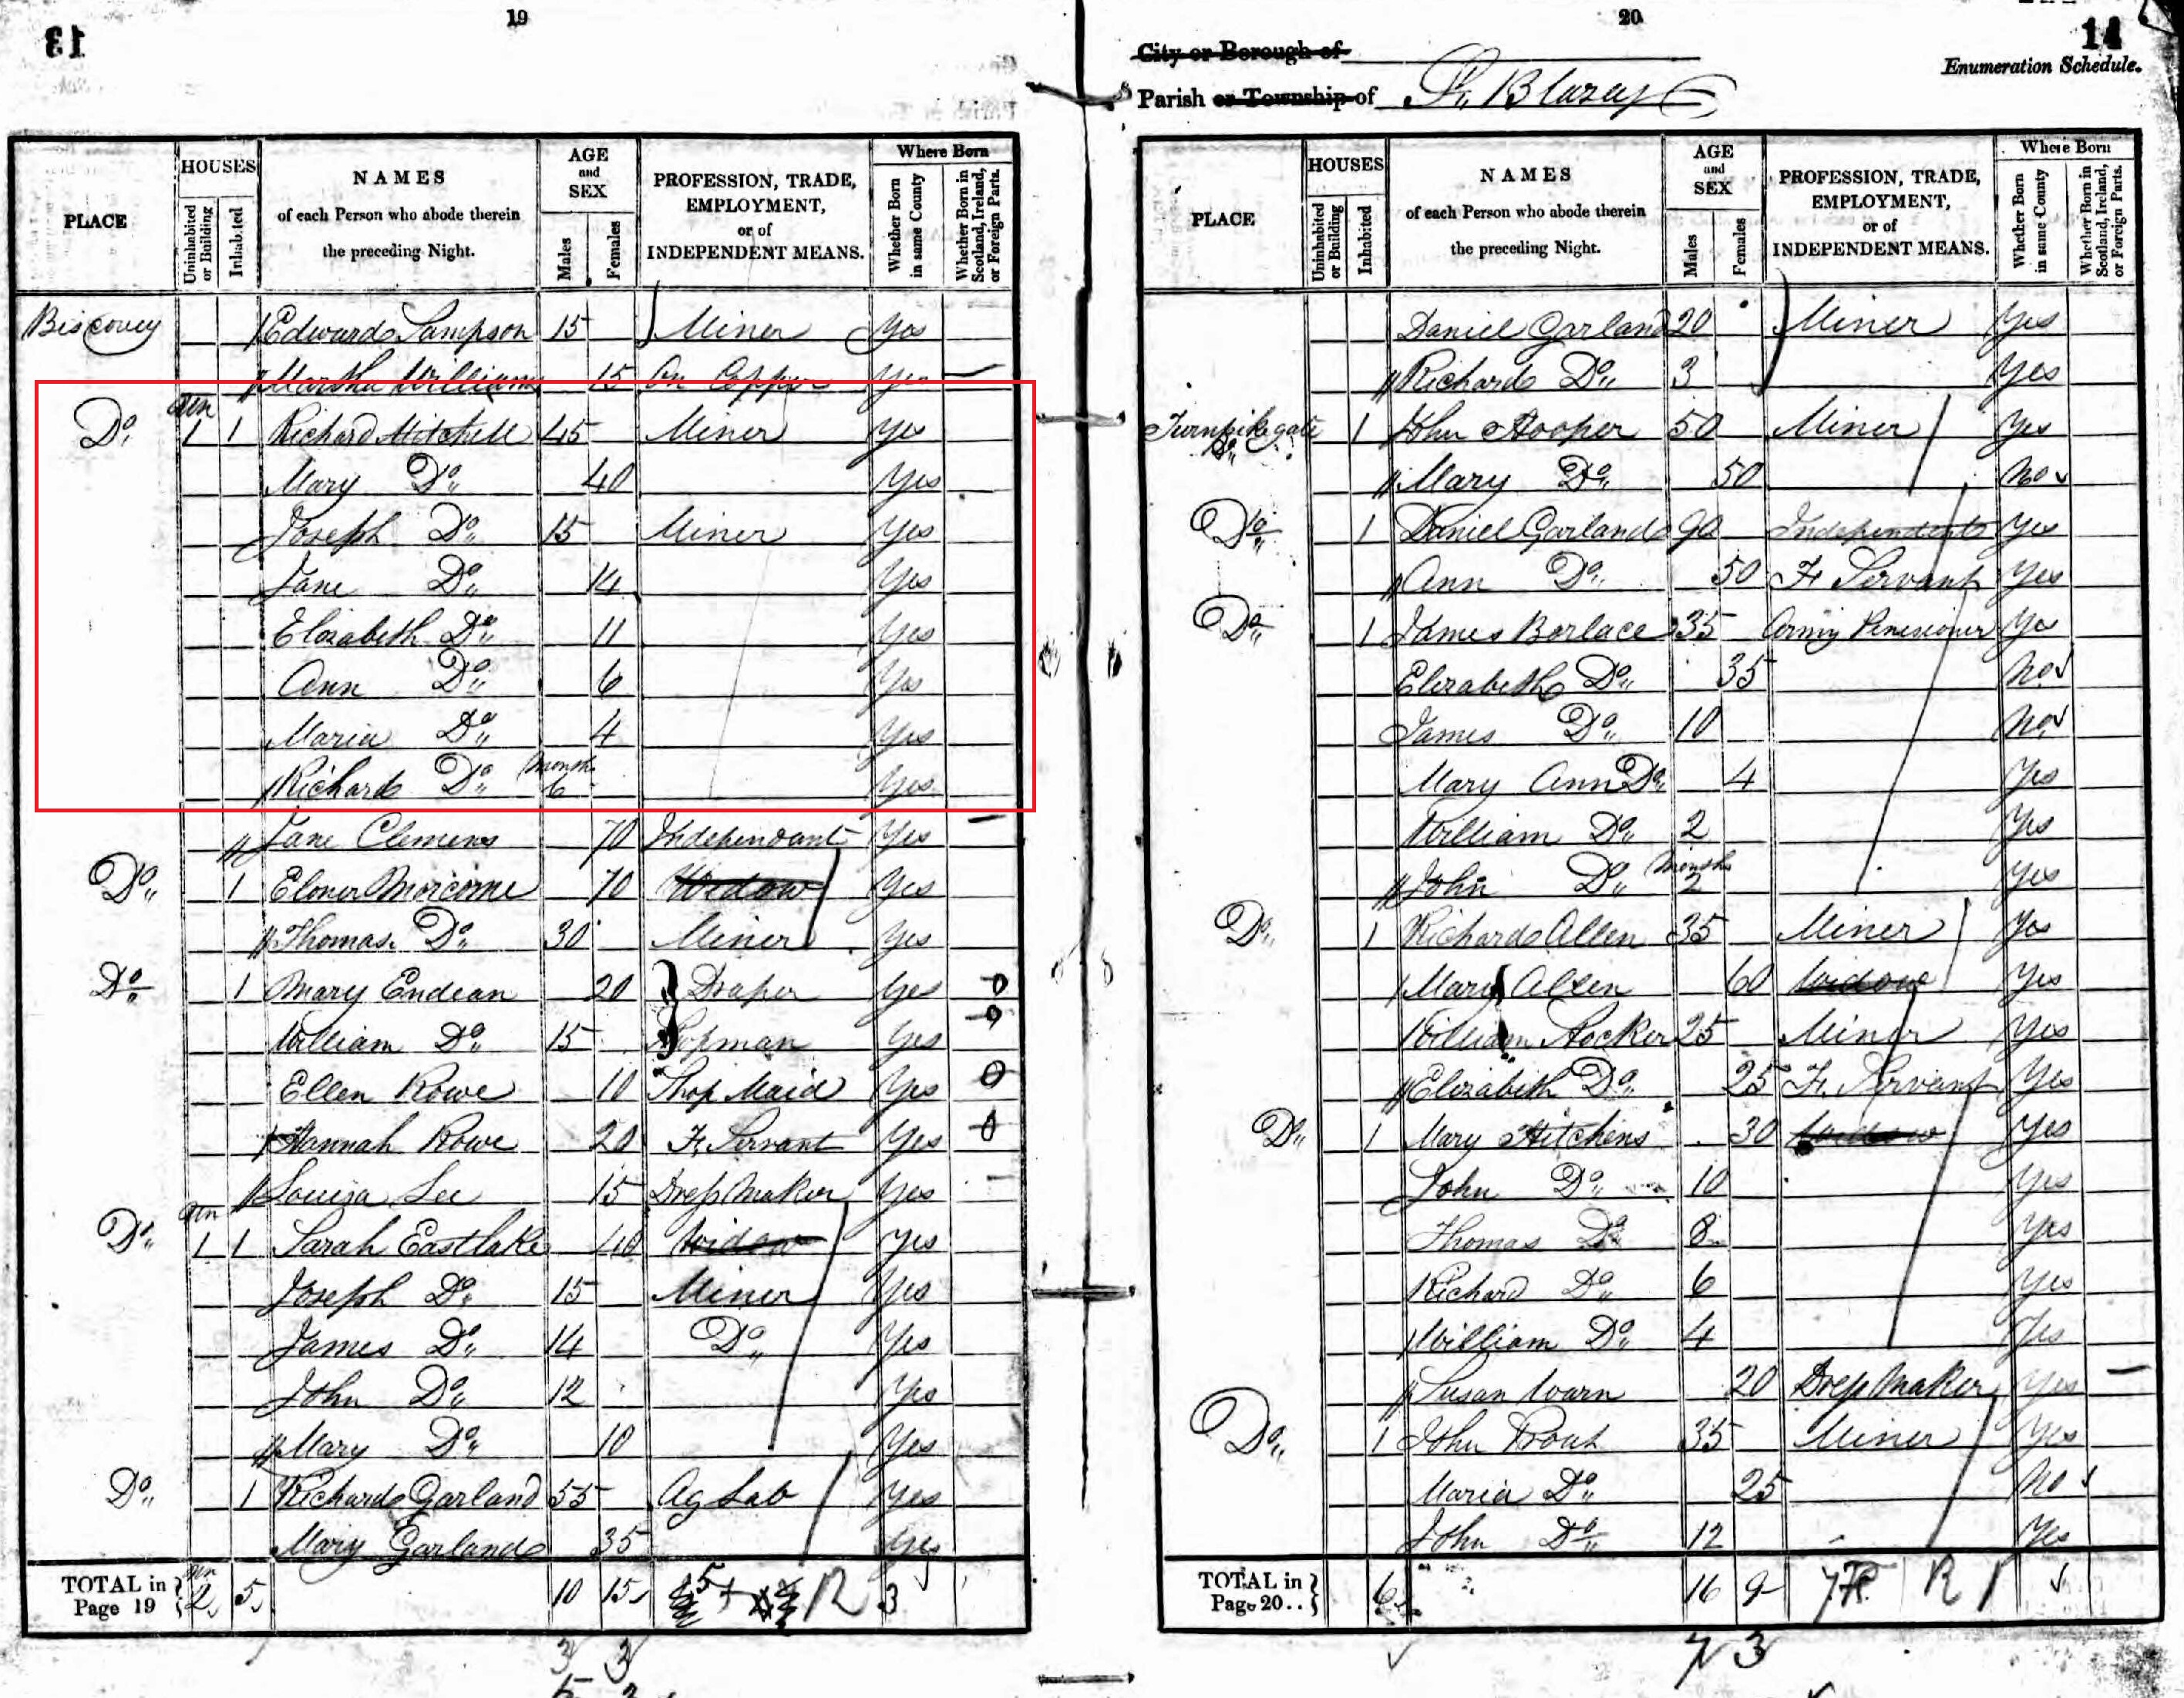 19
13
HOUSES
AGE
and
SEX
Where Born
PLACE
Uninhabited or Building
Inhabited
NAMES
of each Person who abode therein
the preceding Night.
Males
Females
PROFESSION, TRADE,
EMPLOYMENT,
or of
INDEPENDENT MEANS.
Whether Born in same County
Whether Born in Scotland, Ireland, or Foreign Parts.
Biscovey Edward Sampson 15 Miner Yes
Martha Williams 15 On Copper Yes
Do 1 1 Richard Mitchell 45 Miner Yes
Mary Do 40 Yes
Joseph Do 15 Miner Yes
Jane Do 14 Yes
Elizabeth Do 11 Yes
Ann Do 6 Yes
Maria Do 4 Yes
Richard Do Months 6 Yes
Jane Clemens 70 Independant Yes
Do 1 Eloner Morcome 70 Widow Yes
Thomas Do 30 Miner Yes
Do 1 Mary Endean 20 Draper Yes 0
William Do 15 Shopman Yes 0
Ellen Rowe 10 Shop Maid Yes 0
Hannah Rowe 20 F. Servant Yes 0
Louisa Lee 15 Dress Maker Yes
Do 1 1 Sarah Eastlake 40 Widow Yes
Joseph Do 15 Miner Yes
James Do 14 Do Yes
John Do 12 Yes
Mary Do 10 Yes
Do 1 Richard Garland 55 Ag Lab Yes
Mary Garland 35 Yes
TOTAL in Page 19 2 5 10 15 R 3
3 3
20
14
City or Borough of
Enumeration Schedule.
Parish or Township of St. Blazey
HOUSES
AGE
and
SEX
Where Born
PLACE
Uninhabited or Building
Inhabited
NAMES
of each Person who abode therein
the preceding Night.
Males
Females
PROFESSION, TRADE,
EMPLOYMENT,
or of
INDEPENDENT MEANS.
Whether Born in same County
Whether Born in Scotland, Ireland, or Foreign Parts.
Daniel Garland 20 Miner Yes
Richard Do 3 Yes
Turnpike gate 1 John Hooper 50 Miner Yes
Mary Do 50 No
Do 1 Daniel Garland 90 Independent Yes
Ann Do 50 F. Servant Yes
Do 1 James Borlace 35 Army Penesioner Yes
Elizabeth Do 35 No
James Do 10 No
Mary Ann Do 4 Yes
William Do 2 Yes
John Do Months 2 Yes
Do 1 Richard Allen 35 Miner Yes
Mary Allen 60 Widow Yes
William Hocker 25 Miner Yes
Elizabeth Do 25 F. Servant Yes
Do 1 Mary Hitchens 30 Widow Yes
John Do 10 Yes
Thomas Do 8 Yes
Richard Do 6 Yes
William Do 4 Yes
Susan Warn 20 Dress Maker Yes
Do 1 John Prout 35 Miner Yes
Maria Do 25 No
John Do 12 Yes
TOTAL in Page 20 6 16 9 R
7 3